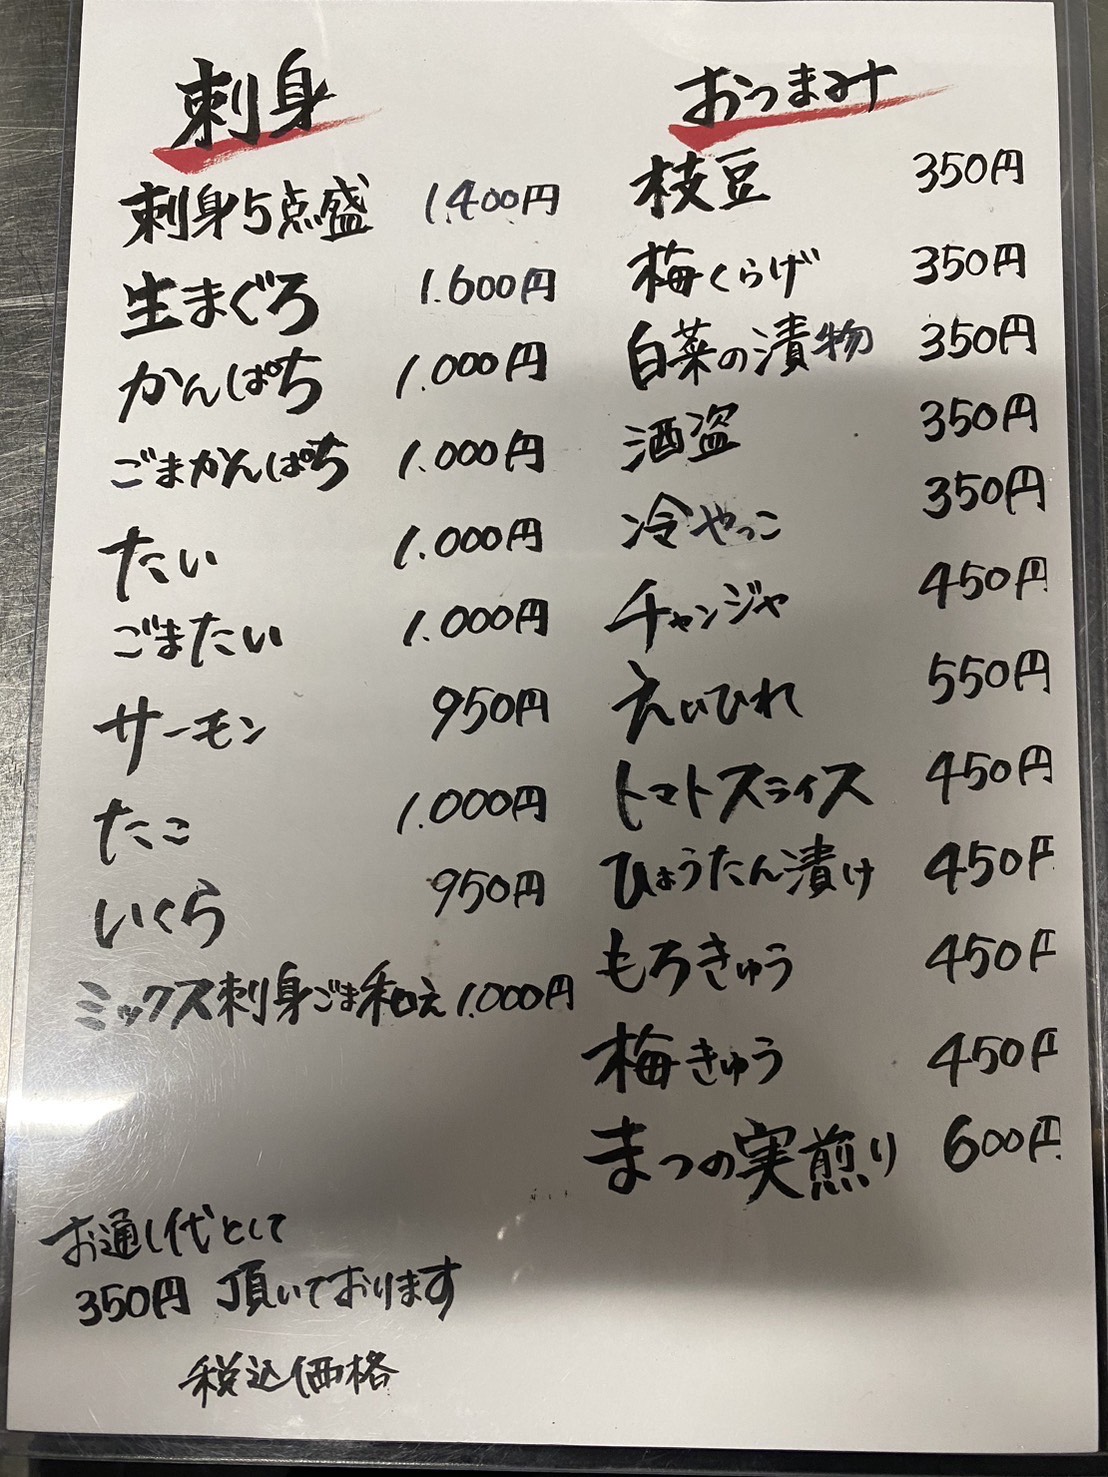 刺身
刺身5点盛 1.400円
生まぐろ 1.600円
かんぱち 1.000円
ごまかんぱち 1.000円
たい 1.000円
ごまたい 1.000円
サーモン 950円
たこ 1.000円
いくら 950円
ミックス刺身ごま和え 1.000円
お通し代として
350円 頂いております
税込価格
おつまみ
枝豆 350円
梅くらげ 350円
白菜の漬物 350円
酒盗 350円
冷やっこ 350円
チャンジャ 450円
えいひれ 550円
トマトスライス 450円
ひょうたん漬け 450円
もろきゅう 450円
梅きゅう 450円
まつの実煎り 600円